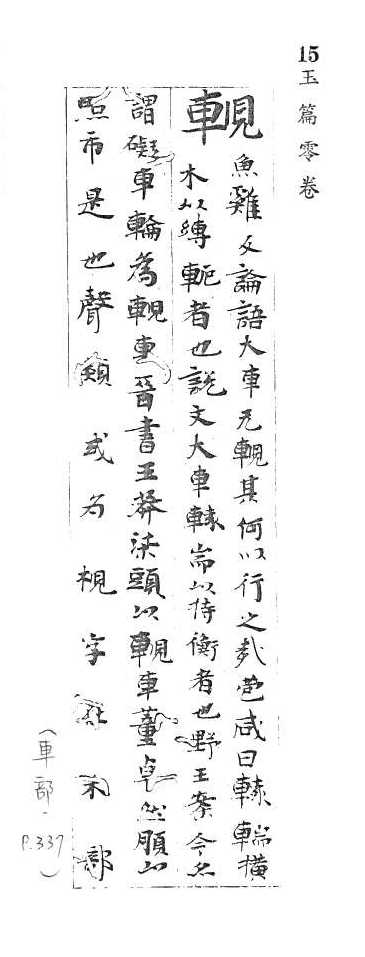 15 玉篇零卷
輗 魚雞反論語大車无輗其何以行之哉苞咸曰轅輲橫
木以縛軶者也說文大車轅耑以持衡者也野王案今名
謂礙車輪為輗車晉書王莽柒頭以輗車董卓然以
照市是也聲類或为棿字在木部
(車部. P.337)